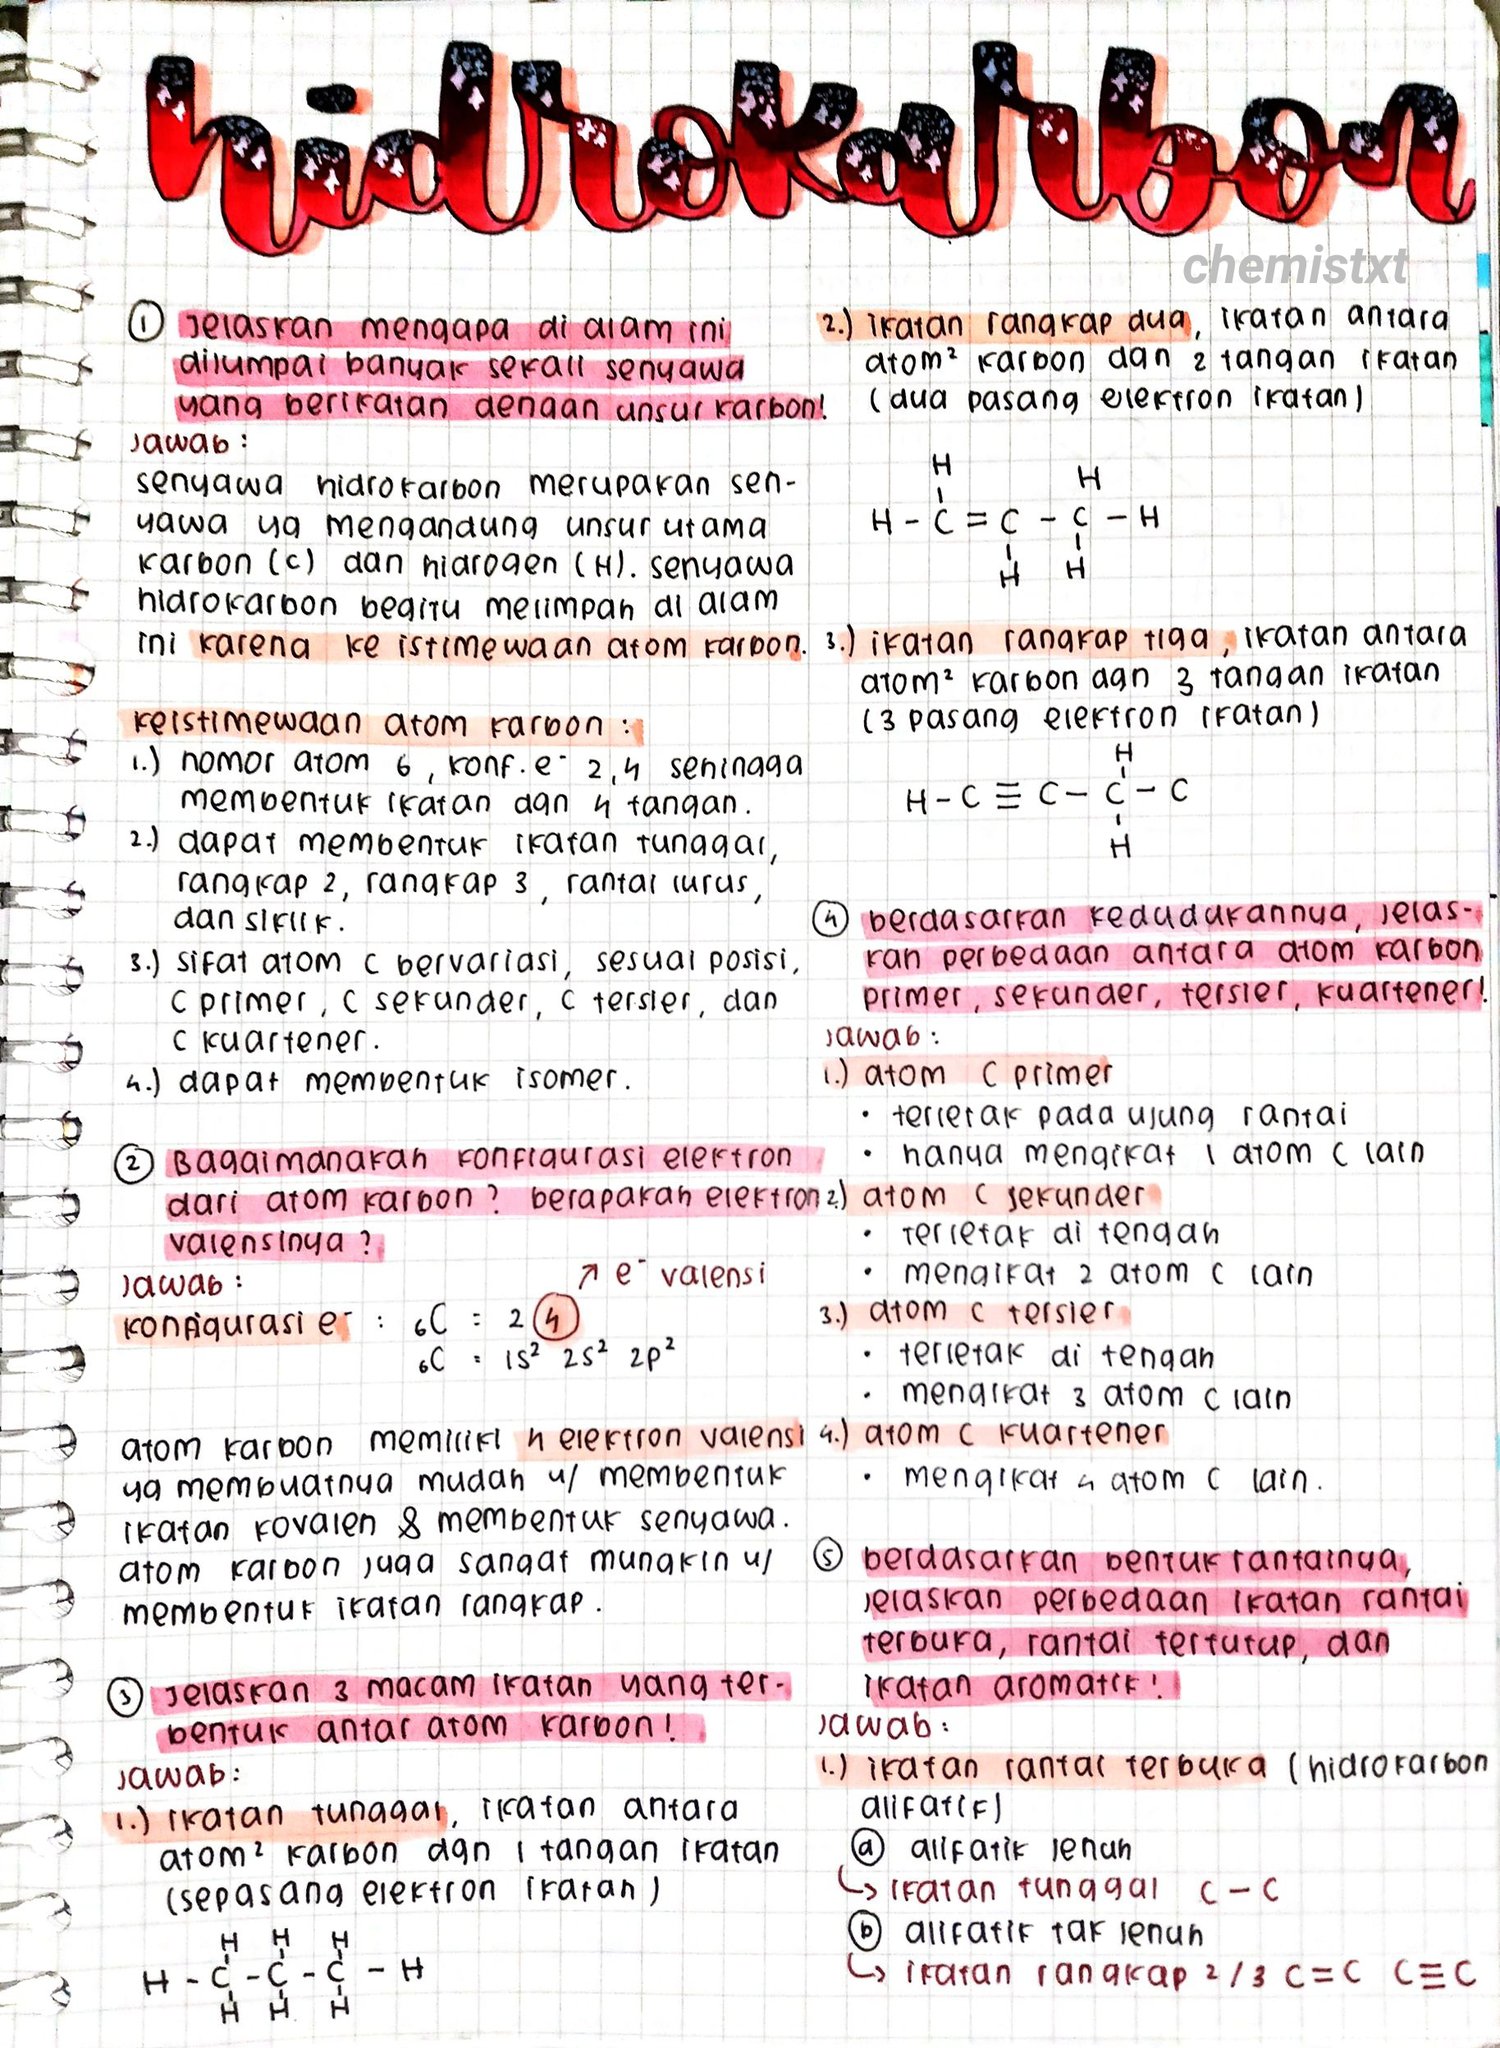 hidrokarbon
chemistxt
① Jelaskan mengapa di alam ini
dijumpai banyak sekali senyawa
yang berikatan dengan unsur karbon!
Jawab :
senyawa hidrokarbon merupakan sen-
yawa yg mengandung unsur utama
karbon (C) dan hidrogen (H). senyawa
hidrokarbon begitu melimpah di alam
ini karena ke istimewaan atom karbon.
keistimewaan atom karbon :
1.) nomor atom 6, konf. e⁻ 2,4 sehingga
membentuk ikatan dgn 4 tangan.
2.) dapat membentuk ikatan tunggal,
rangkap 2, rangkap 3, rantai lurus,
dan siklik.
3.) sifat atom C bervariasi, sesuai posisi,
C primer, C sekunder, C tersier, dan
C kuartener.
4.) dapat membentuk isomer.
② Bagaimanakah konfigurasi elektron
dari atom karbon? berapakah elektron
valensinya?
Jawab :
↗ e⁻ valensi
konfigurasi e⁻ : ₆C = 2 4
₆C = 1s² 2s² 2p²
atom karbon memiliki 4 elektron valensi
yg membuatnya mudah u/ membentuk
ikatan kovalen & membentuk senyawa.
atom karbon juga sangat mungkin u/
membentuk ikatan rangkap.
③ Jelaskan 3 macam ikatan yang ter-
bentuk antar atom karbon!
Jawab :
1.) ikatan tunggal, ikatan antara
atom² karbon dgn 1 tangan ikatan
(sepasang elektron ikatan)
H H H
H - C - C - C - H
H H H
2.) ikatan rangkap dua, ikatan antara
atom² karbon dgn 2 tangan ikatan
(dua pasang elektron ikatan)
H H
H - C = C - C - H
H H
3.) ikatan rangkap tiga, ikatan antara
atom² karbon dgn 3 tangan ikatan
(3 pasang elektron ikatan)
H
H - C ≡ C - C - C
H
④ berdasarkan kedudukannya, jelas-
kan perbedaan antara atom karbon
primer, sekunder, tersier, kuartener!
Jawab :
1.) atom C primer
• terletak pada ujung rantai
• hanya mengikat 1 atom C lain
2.) atom C sekunder
• terletak di tengah
• mengikat 2 atom C lain
3.) atom C tersier
• terletak di tengah
• mengikat 3 atom C lain
4.) atom C kuartener
• mengikat 4 atom C lain.
⑤ berdasarkan bentuk rantainya,
jelaskan perbedaan ikatan rantai
terbuka, rantai tertutup, dan
ikatan aromatik!
Jawab :
1.) ikatan rantai terbuka (hidrokarbon
alifatik)
ⓐ alifatik jenuh
↳ ikatan tunggal C - C
ⓑ alifatik tak jenuh
↳ ikatan rangkap 2/3 C=C C≡C